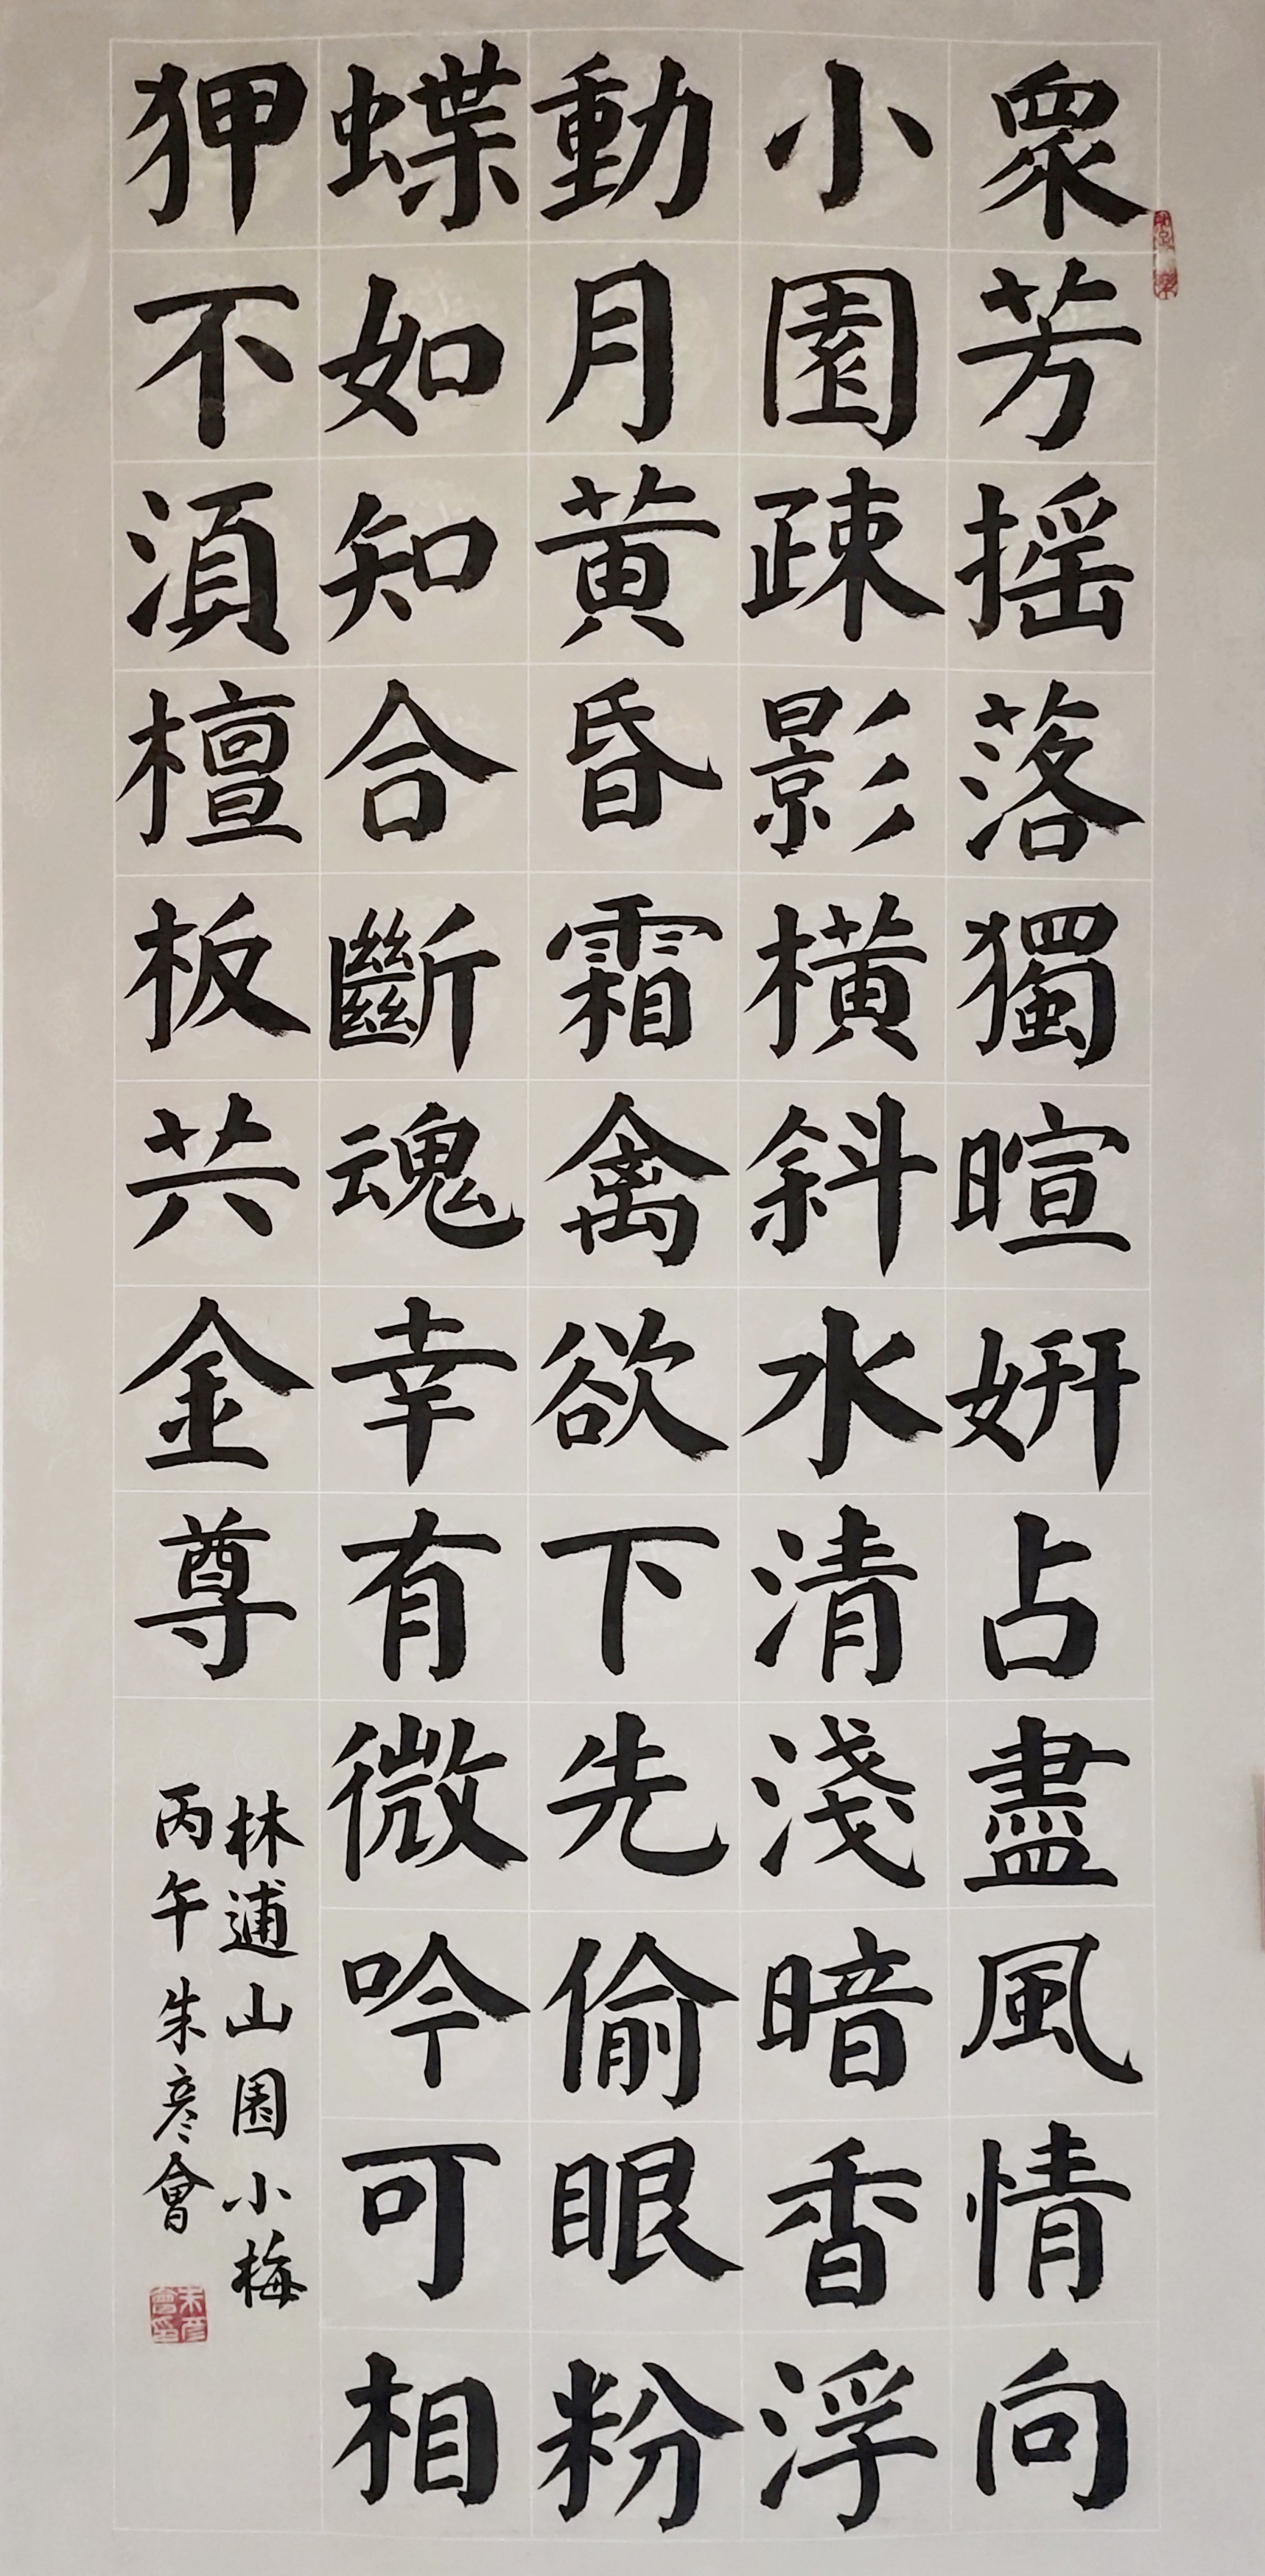 眾芳摇落獨暄妍占盡風情向
小園疎影橫斜水清淺暗香浮
動月黄昏霜禽欲下先偷眼粉
蝶如知合斷魂幸有微吟可相
狎不須檀板共金尊
林逋山園小梅
丙午朱彥會
朱彥會印